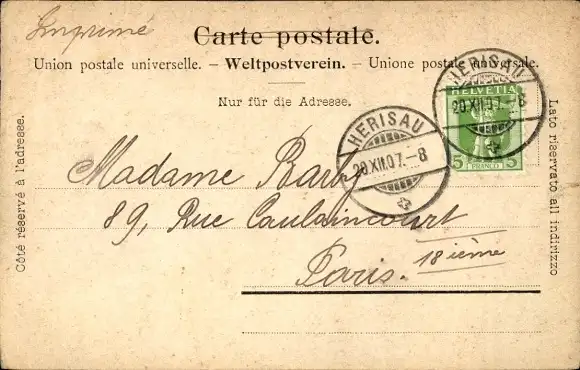 Imprimé
Carte postale.
Union postale universelle. – Weltpostverein. – Unione postale universale.
Nur für die Adresse.
Côté réservé à l'adresse.
Lato riservato all indirizzo
HELVETIA
5 5
FRANCO
HERISAU
20.XII.07.-8
HERISAU
20.XII.07.-8
Madame Barby
89, Rue Caulaincourt
Paris. 18ième